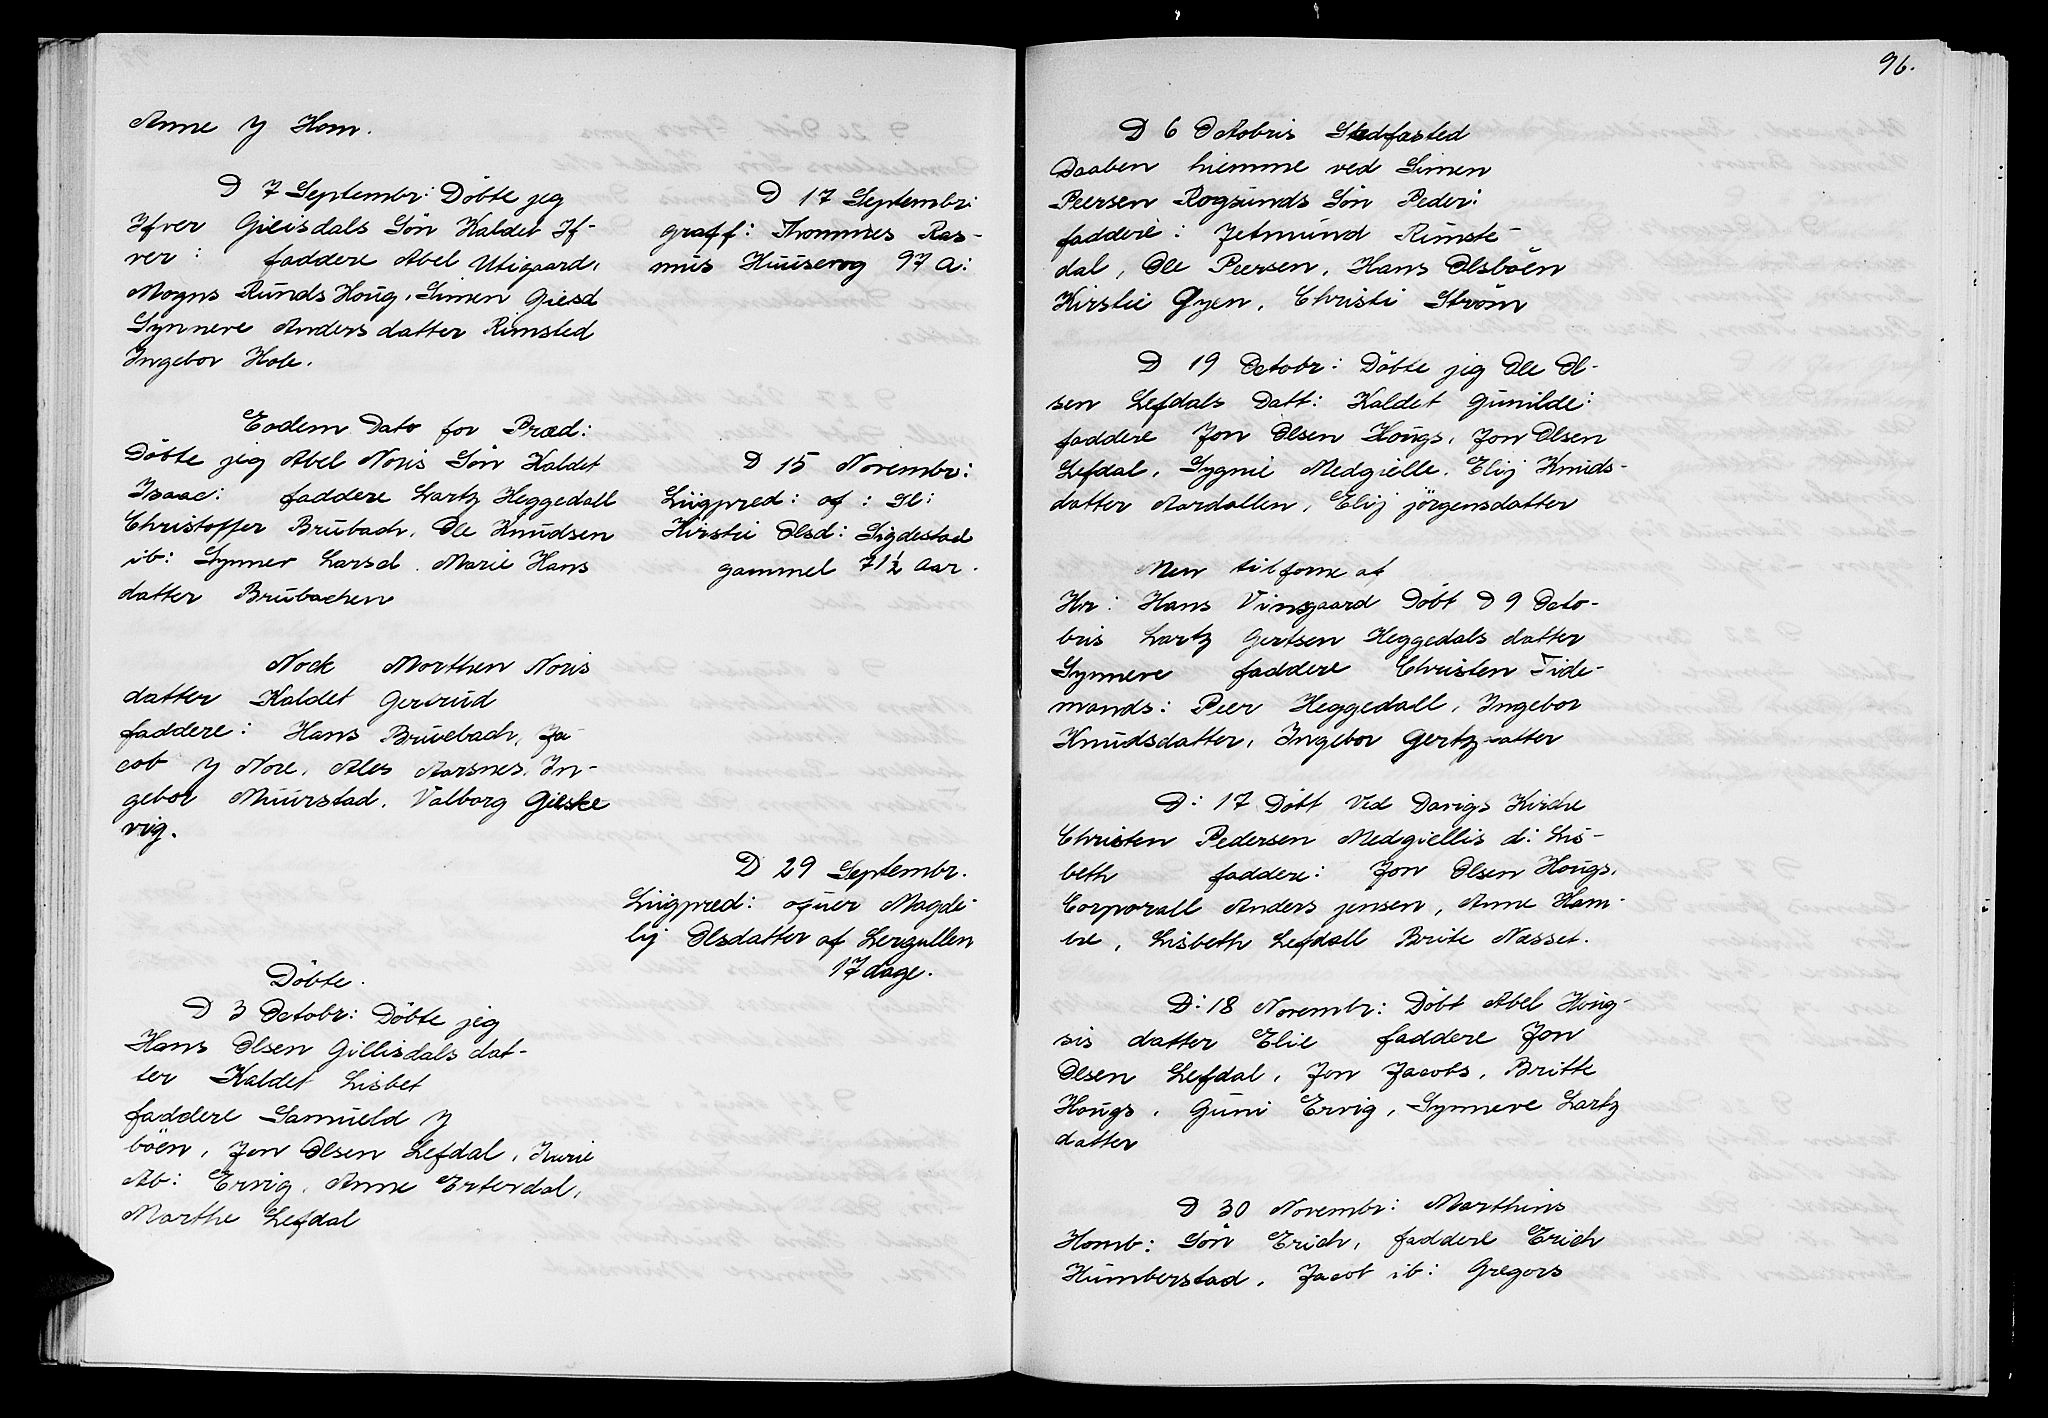 Anne y Hom.
D 7 Septembr: Döbte jeg
Ifver Gieisdals Sön Kaldet If-
ver: faddere Abel Utigaard,
Mogns Runds Houg, Simen Giesd
Synneve Andersdatter Rimsted
Ingebor Hole.
Eodem Dato for Præd:
Döbte jeg Abel Noris Sön Kaldet
Isaac: faddere Lartz Heggedall
Christoffer Brubach, Ole Knudsen
ib: Synner Larsd. Marie Hans
datter Brubachen
Nock Morthen Noris
datter Kaldet Gertrud
faddere: Hans Bruebach, Ja-
cob y Nore, Ales Aarsnes, In-
gebor Muurstad, Valborg Gieske
vig.
Döbte.
D 3 Octobr: Döbte jeg
Hans Olsen Gillisdals dat-
ter Kaldet Lisbet
faddere Samueld y
böen, Jon Olsen Lefdal, Kurie
Ab: Ervig, Anne Erterdal,
Marthe Lefdal
D 17 Septembr:
graff: Thommes Ras-
mus Huuserog 97 A:
D 15 Novembr:
Liigpred: of: Sl:
Kirstie Olsd: Sigdestad
gammel 71½ Aar.
D 29 Septembr.
Liigpred: ofuer Magde-
lij Olsdatter af Lergullen
17 dage.
96.
D 6 Octobris Stedfasted
Daaben hiemme ved Simen
Peersen Rogsunds Sön Peder:
faddere: Jetmund Rimste-
dal, Ole Peersen, Hans Olsböen
Kirstie Øyen, Christi Ström
D 19 Octobr: Döbte jeg Ole Ol-
sen Lefdals Datt: Kaldet Gunilde:
faddere Jon Olsen Hougs, Jon Olsen
Lefdal, Sygnie Medgielle, Elij Knuds-
datter Aardallen, Elij jörgensdatter
Men tilforne af
Hr: Hans Vinsgaard Döbt D 9 Octo-
bris Lartz Gertsen Heggedals datter
Synneve faddere Christen Tide-
mands: Peer Heggedall, Ingebor
Knudsdatter, Ingebor Gertzdatter
D: 17 Döbt Ved Davigs Kirche
Christen Pedersen Medgiellis d: Lis-
beth faddere: Jon Olsen Hougs,
Corporall Anders jensen, Anne Ham-
re, Lisbeth Lefdall Brite Næsset.
D: 18 Novembr: Döbt Abel Houg-
sis datter Elie faddere Jon
Olsen Lefdal, Jon Jacobs, Britte
Hougs, Guni Ervig, Synneve Lartz
datter
D 30 Novembr: Marthins
Homb: Sön Erich, faddere Erich
Humberstad, Jacob ib: Gregors